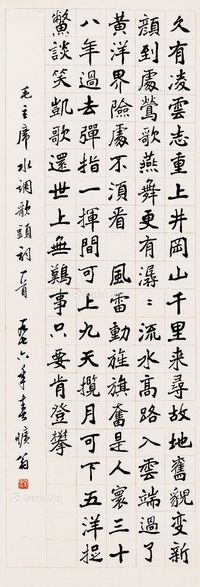 久有凌雲志重上井岡山千里来尋故地舊貌變新
顔到處鶯歌燕舞更有潺〻流水高路入雲端過了
黄洋界險處不湏看 風雷動旌旗奮是人寰三十
八年過去彈指一揮間可上九天攬月可下五洋捉
鱉談笑凱歌還世上無難事只要肯登攀
毛主席水调歌頭詞一首 一九七六年春 翁